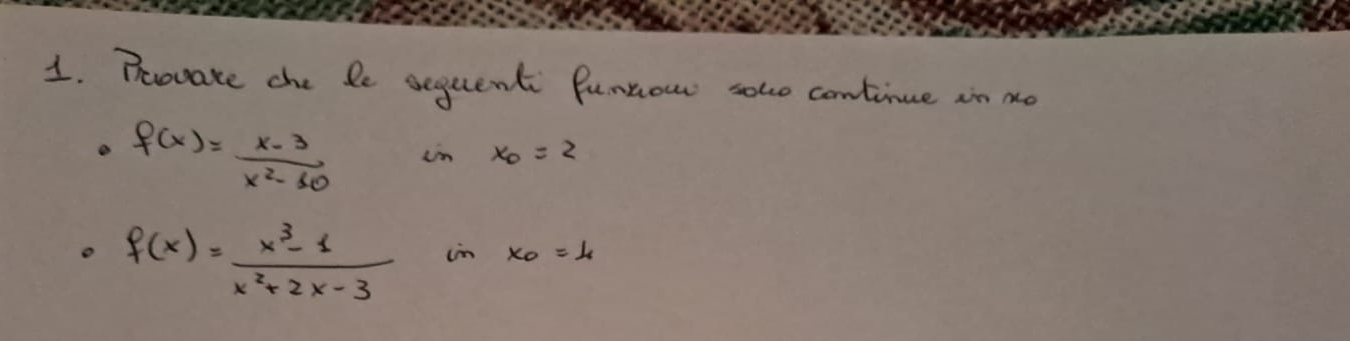 1. Provare che le seguenti funzioni sono continue in x0
• f(x) = x-3 / x²-10 in x0 = 2
• f(x) = x³-1 / x²+2x-3 in x0 =